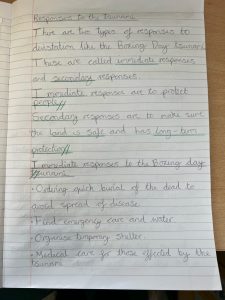 Responses to the tsunami
There are two types of responses to
devistation like the Boxing Day tsunami.
These are called immediate responses
and secondary responses.
Immediate responses are to protect
people
Secondary responses are to make sure
the land is safe and has long-term
protection
Immediate responses to the Boxing day
tsunami
• Ordering quick burial of the dead to
avoid spread of disease.
• Find emergency care and water.
• Organise temporary shelter.
• Medical care for those effected by the
tsunami